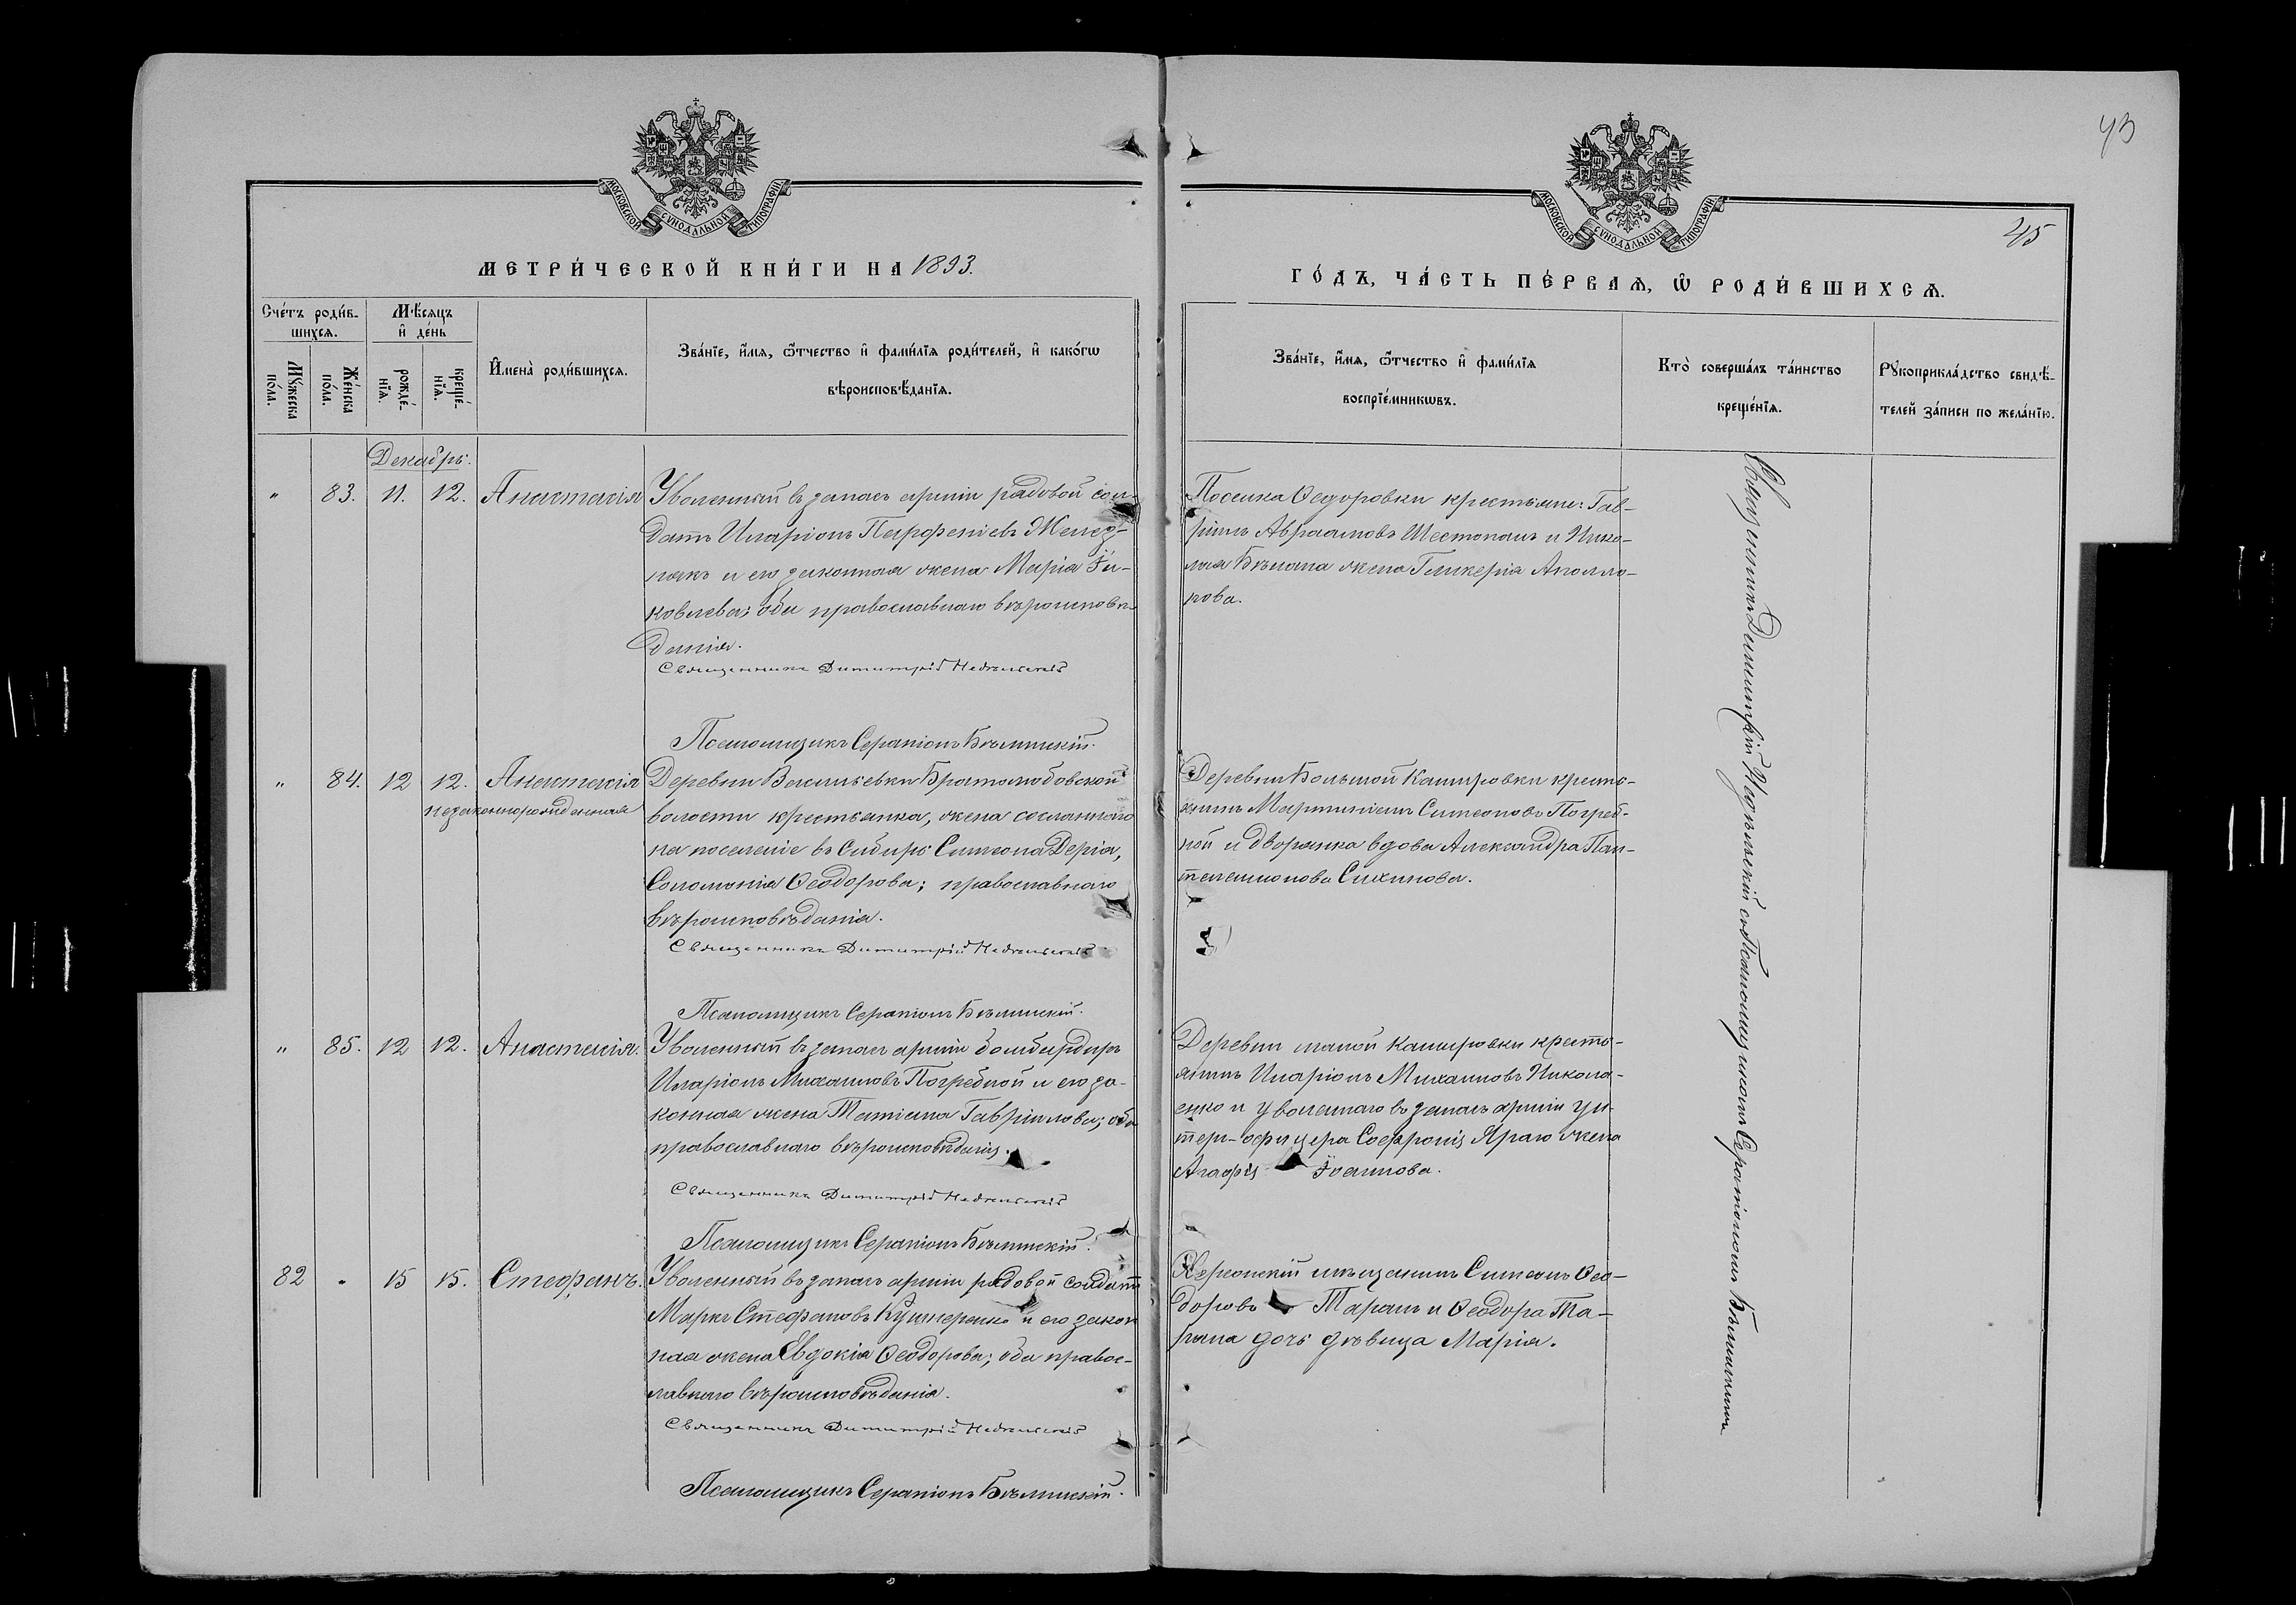 43
МОСКОВСКОЙ СѴНОДАЛЬНОЙ ТИПОГРАФІИ
МОСКОВСКОЙ СѴНОДАЛЬНОЙ ТИПОГРАФІИ
45
МЕТРИ́ЧЕСКОЙ КНИ́ГИ НА 1893.
ГО́ДЪ, ЧА́СТЬ ПЕ́РВАѦ, Ѽ РОДИ́ВШИХСѦ.
Сче́тъ роди́в-
шихсѧ.
Мѣ́сяцъ
и҆ де́нь
Мꙋ́жеска
по́ла.
Же́нска
по́ла.
рожде́-
нїѧ.
креще́-
нїѧ.
И҆мена̀ роди́вшихсѧ.
Зва́нїе, и҆́мѧ, ѻ҆́тчество и҆ фами́лїѧ роди́телей, и҆ како́гѡ
вѣроисповѣ́данїѧ.
Зва́нїе, и҆́мѧ, ѻ҆́тчество и҆ фами́лїѧ
воспрїе́мникѡвъ.
Кто̀ соверша́лъ та́инство
креще́нїѧ.
Рꙋкоприкла́дство свидѣ́-
телей за́писи по жела́нїю.
Декабрь.
" 83. 11. 12. Анастасія
Уволенный въ запасъ арміи рядовой сол-
датъ Иларіонъ Парфеніевъ Желез-
някъ и его законная жена Марія Іа-
ковлева; оба православнаго вѣроисповѣ-
данія.
Священникъ Димитрій Недѣльскій
Псаломщикъ Серапіонъ Бѣлинскій.
Поселка Ѳедоровки крестьяне: Гав-
ріилъ Авраамовъ Шестопалъ и Нико-
лая Бѣлана жена Гликерія Аполло-
нова.
" 84. 12 12. Анастасія
незаконнорожденная
Деревни Васильевки Братолюбовской
волости крестьянка, жена сосланнаго
на поселеніе въ Сибирь Симеона Дерія,
Соломонія Ѳеодорова; православнаго
вѣроисповѣданія.
Священникъ Димитрій Недѣльскій
Псаломщикъ Серапіонъ Бѣлинскій.
Деревни Большой Кашировки кресть-
янинъ Мартиніанъ Симеоновъ Погреб-
ной и дворянка вдова Александра Пан-
телеимонова Сихинова.
" 85. 12 12. Анастасія.
Уволенный въ запасъ арміи бомбардиръ
Иларіонъ Михаиловъ Погребной и его за-
конная жена Татіана Гавріилова; оба
православнаго вѣроисповѣданія.
Священникъ Димитрій Недѣльскій
Псаломщикъ Серапіонъ Бѣлинскій.
Деревни малой Кашировки кресть-
янинъ Иларіонъ Михаиловъ Никола-
енко и уволеннаго въ запасъ арміи ун-
теръ-офицера Софронія Яраго жена
Агафія Іоаннова.
82 " 15 15. Стефанъ.
Уволенный въ запасъ арміи рядовой солдатъ
Маркъ Стефановъ Кушнеренко и его закон
ная жена Евдокія Ѳеодорова; оба правос-
лавнаго вѣроисповѣданія.
Священникъ Димитрій Недѣльскій
Псаломщикъ Серапіонъ Бѣлинскій.
Херсонскій мѣщанинъ Симеонъ Ѳео-
доровъ Таранъ и Ѳеодора Та-
рана дочь дѣвица Марія.
Священникъ Димитрій Недѣльскій съ Псаломщикомъ Серапіономъ Бѣлинскимъ